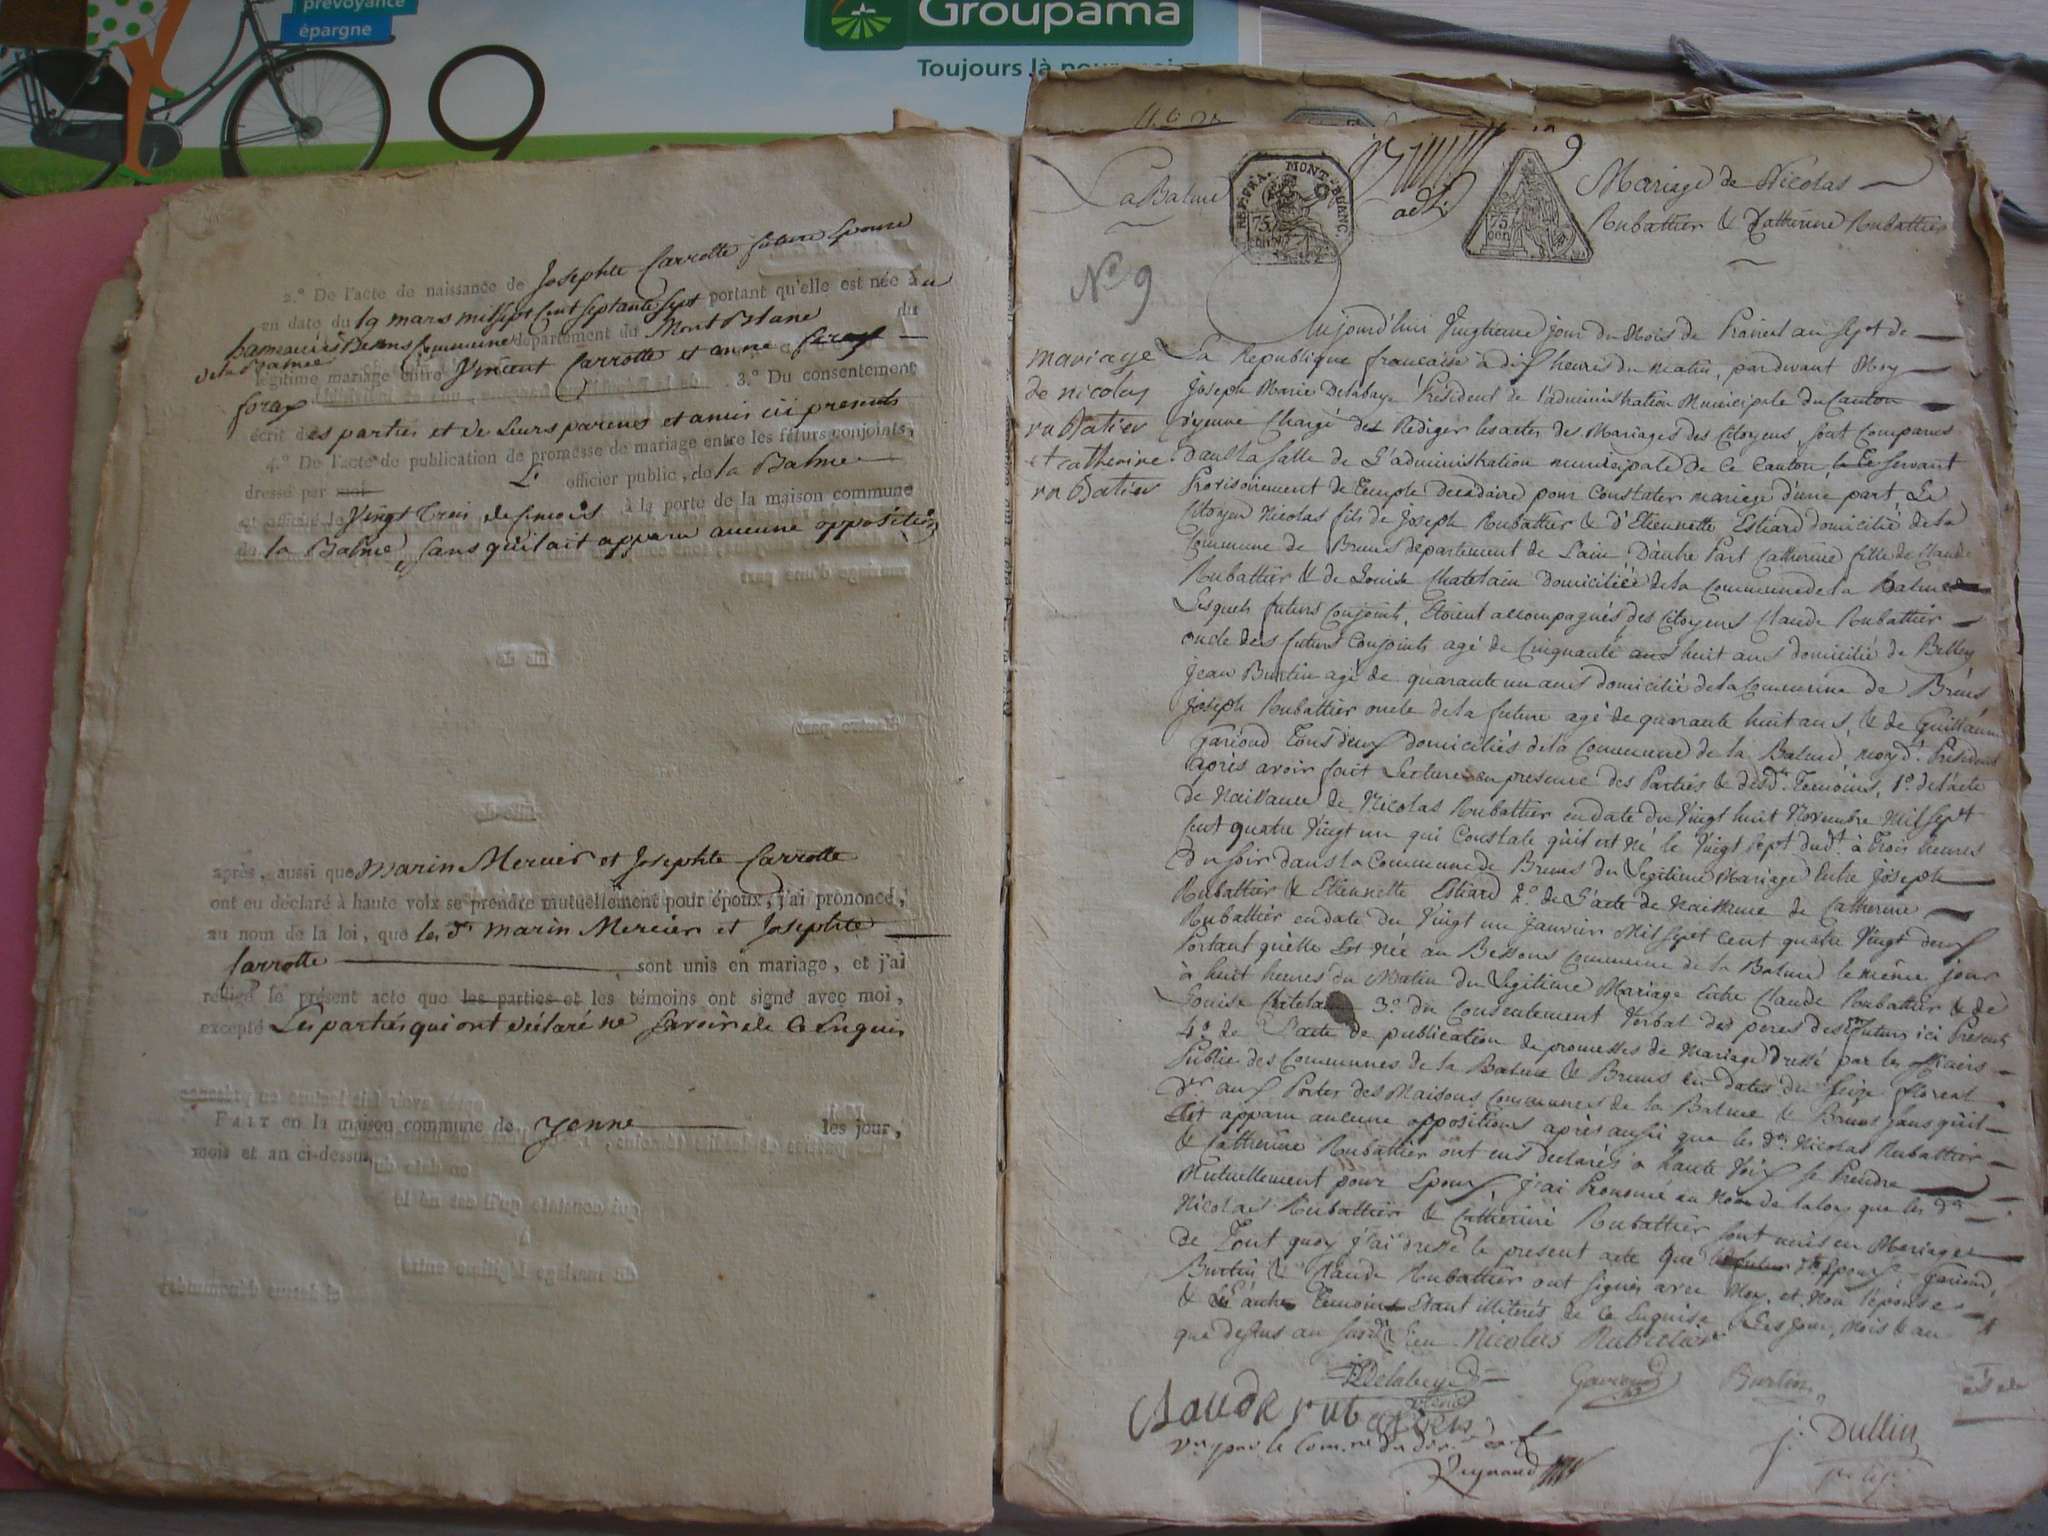 prévoyance
épargne
Groupama
Toujours là
9
2.° De l'acte de naissance de Josephte Carrotte future Epouse
en date du 19 mars mil sept cent septante sept portant qu'elle est née au
hameau des Bessons Commune département du Mont Blanc du
de la Balme
légitime mariage entre Vincent Carrotte et anne
foray 3.° Du consentement
écrit des parties et de Leurs parens et amis ici presents
4.° De l'acte de publication de promesse de mariage entre les futurs conjoints,
dressé par moi L' officier public, de la Balme
Vingt Trois de ce mois à la porte de la maison commune
la Balme, sans qu'il ait apparu aucune opposition
après, aussi que Marin Mercier et Josephte Carrotte
ont eu déclaré à haute voix se prendre mutuellement pour époux, j'ai prononcé,
au nom de la loi, que les d.s marin Mercier et Josephte
Carrotte sont unis en mariage, et j'ai
rédigé le présent acte que les parties et les témoins ont signé avec moi,
excepté Les parties qui ont déclaré ne savoir de ce Enquis
FAIT en la maison commune de yenne les jour,
mois et an ci-dessus.
La Balme
REP. FRA. MONT-BLANC.
75
75
cen
Mariage de Nicolas
Rubattier & Catherine Rubattier
N° 9
mariage
de nicolas
rubatier
et catherine
rubatier
Aujourd'hui Vingtieme jour du Mois de Prairial an Sept de
La Republique francaise à dix heures du matin, pardevant Moy
Joseph Marie Delabaye Président de l'administration Municipale du Canton
d'yenne Chargé de Rediger les actes des Mariages des Citoyens, sont Comparus
dans la salle de L'administration municipale de ce Canton servant
Provisoirement de Temple decadaire pour constater mariage d'une part Le
Citoyen Nicolas fils de Joseph Rubattier & d'Etiennette Estiard domicilié de la
Commune de Brens departement de Lain D'autre Part Catherine fille de Claude
Rubattier & de Louise Chatelain domiciliée de la Commune de la Balme
Lesquels futurs Conjoints, Etoient accompagnés des Citoyens Claude Rubattier
oncle des futurs Conjoints agé de Cinquante ans huit ans domicilié de Belley
Jean Burtin agé de quarante un ans domicilié de la Commune de Brens
Joseph Rubattier oncle de la future agé de quarante huit ans, & de Guillaume
Gariond Tous deux domiciliés de la Commune de la Balme, moy d.t Président
après avoir fait Lecture en presence des Parties & des d.ts Temoins, 1.° de l'acte
de Naissance de Nicolas Rubattier en date du Vingt huit Novembre Mil Sept
Cent quatre Vingt un qui Constate qu'il est Né le Vingt Sept dud.t à Trois heures
du soir dans la Commune de Brens du Legitime Mariage Entre Joseph
Rubattier & Etiennette Estiard 2.° de L'acte de Naissance de Catherine
Rubattier en date du Vingt un Janvier Mil Sept Cent quatre Vingt deux
Portant qu'elle Est Née au Bessons Commune de la Balme le même jour
à huit heures du Matin du Legitime Mariage Entre Claude Rubattier & de
Louise Chatelain 3.° du Consentement Verbal des peres des futurs ici Presents
4.° de L'acte de publication de promesses de Mariage dressé par les officiers
Publics des Communes de la Balme & Brens en dates du Seize floreal
d.er aux Portes des Maisons Communes de la Balme & Brens sans qu'il
ait apparu aucune opposition après aussi que les d.ts Nicolas Rubattier
& Catherine Rubattier ont eus declarés à haute Voix se Prendre
Mutuellement pour Epoux, J'ai Prononcé au Nom de la loy que les d.ts
Nicolas Rubattier & Catherine Rubattier sont unis en Mariage
de Tout quoy j'ai dressé le present acte que Epoux Gariond,
Burtin & Claude Rubattier ont signés avec Moy, et Non l'épouse
& Les autres Temoins Etant illiterés de ce Enquise Les Jour, Mois & an
que dessus au susd.t Lieu Nicolas Rubatier
Delabaye
Gariond
Burtin
claude rubatier
vu par le Com.re du dir.re ex.f
Reynaud
j. Dullin